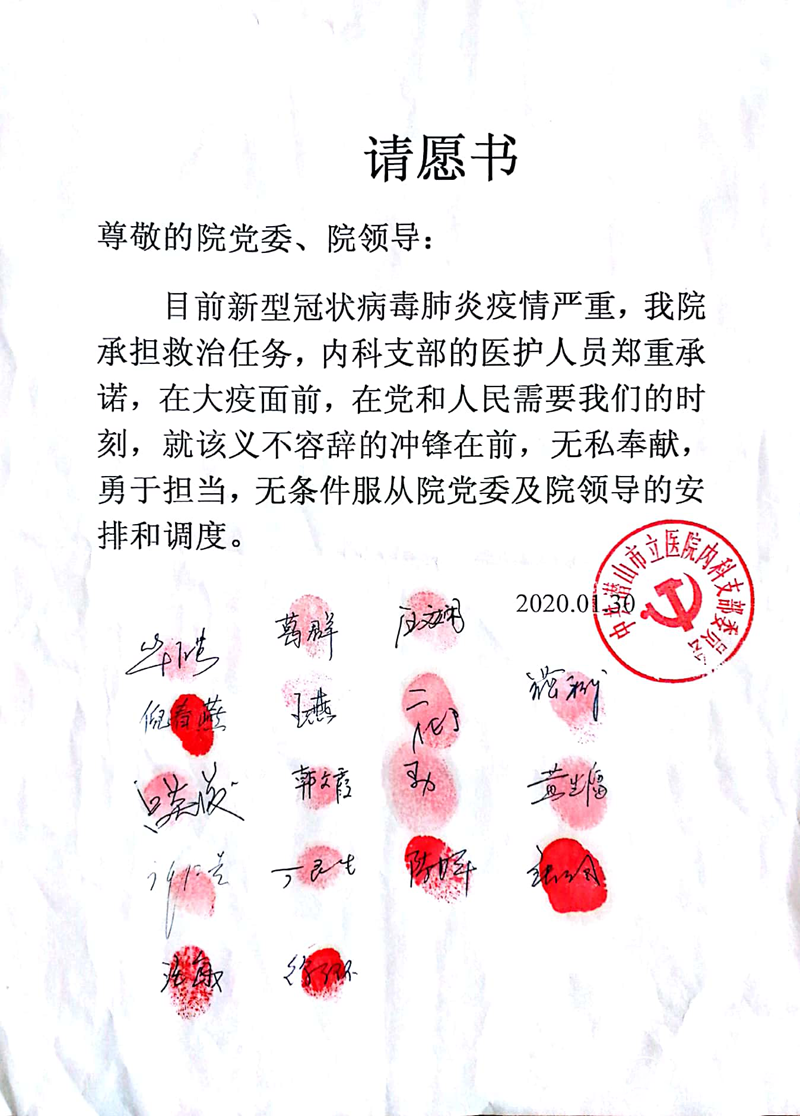 请愿书
尊敬的院党委、院领导：
目前新型冠状病毒肺炎疫情严重，我院
承担救治任务，内科支部的医护人员郑重承
诺，在大疫面前，在党和人民需要我们的时
刻，就该义不容辞的冲锋在前，无私奉献，
勇于担当，无条件服从院党委及院领导的安
排和调度。
2020.01.30
中共潜山市立医院内科支部委员会
葛群
倪春燕
王燕
郭文霞
黄生福
丁民生